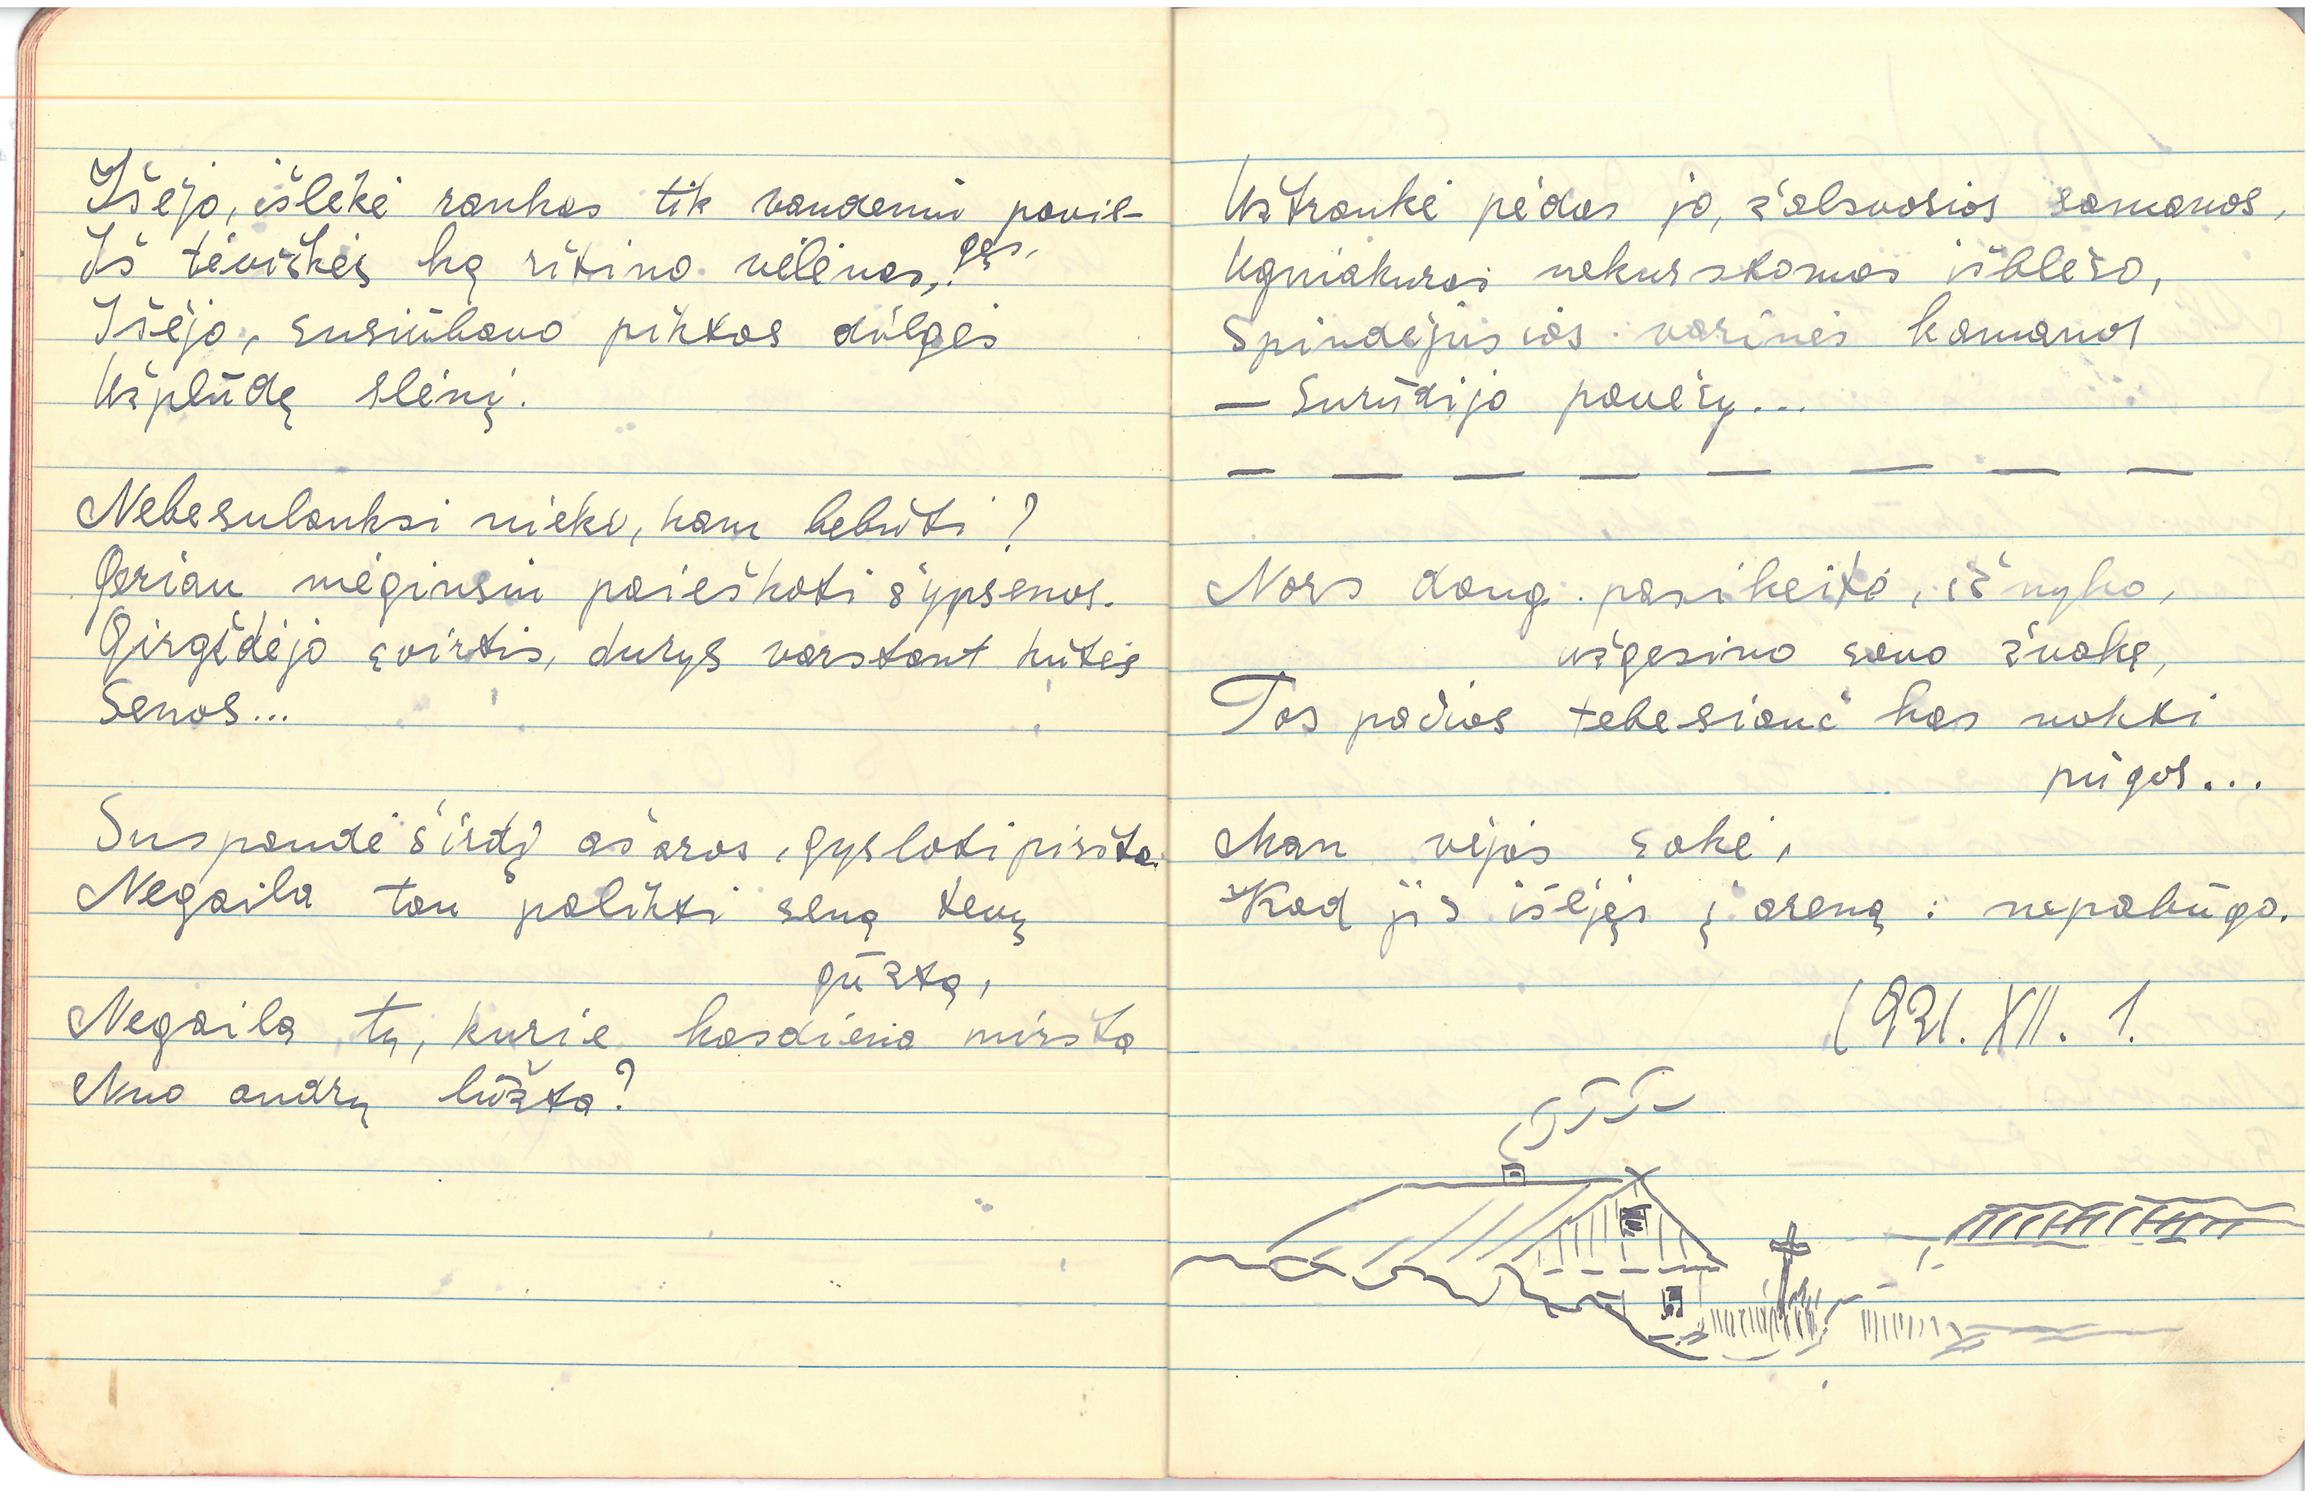 Išėjo, išlėkė rankas tik vandeniu pavil-
gęs,
Iš tėviškės ką ritino velėnas,
Išėjo, susiūbavo piktos dilgės
Užplūdę slėnį.
Nebesulauksi nieko, kam bebūti?
Geriau mėginsiu paieškoti šypsenos.
Girgždėjo svirtis, durys varstant kūtės
Senos...
Suspaudė širdį ašaros, gysloti pirštai
Negaila tau palikti seną tėvų
gūžtą,
Negaila tų, kurie kasdieną miršta
Nuo audrų lūžta?
Užtraukė pėdas jo, žalsvosios samanos,
Ugniakuras nekurstomas išblėso,
Spindėjusios varinės kamanos
– Surūdijo pavėsy...
– – – – – – – –
Nors daug pasikeitė, išnyko,
užgesino savo žvakę,
Tos pačios tebesiaučia kas naktį
pūgos...
Man vėjas sakė,
Kad jis išėjęs į areną: nepabūgo.
1921. XII. 1.